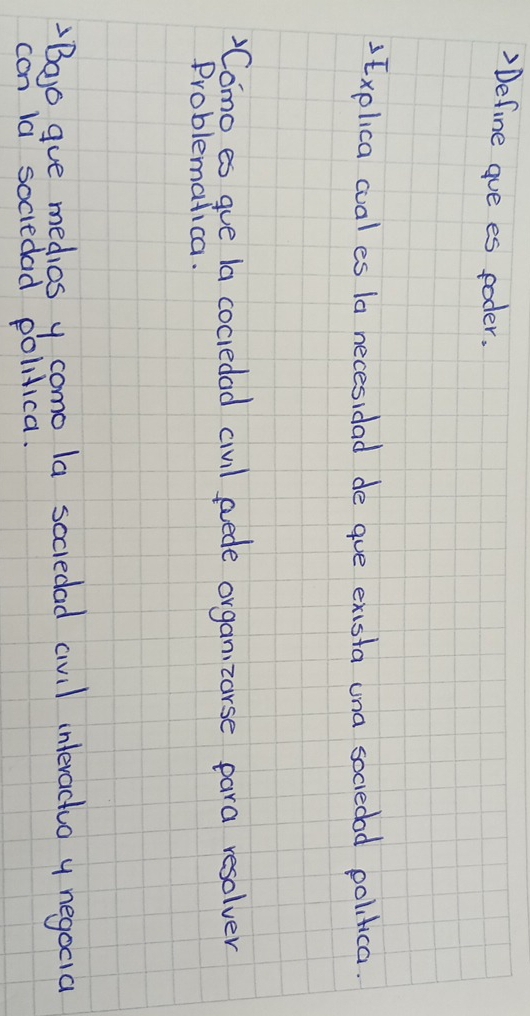 >Define que es poder.
>Explica cual es la necesidad de que exista una sociedad politica.
>Cómo es que la cociedad civil puede organizarse para resolver
Problematica.
>Bajo que medios y como la sociedad civil interactua y negocia
con la sociedad politica.